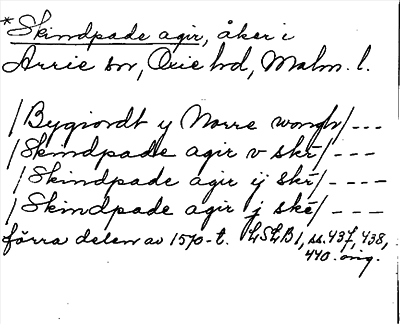 *Skindpade agir, åker i
Arrie sn, Oxie hd, Malm. l.
/Bygiordt y Norre wongh/---
/Skindpade agir v skr̄/---
/Skindpade agir ij skr̄/----
/Skindpade agir j skē/---
förra delen av 1570-t. LSLB 1, ss. 437, 438,
440. orig.